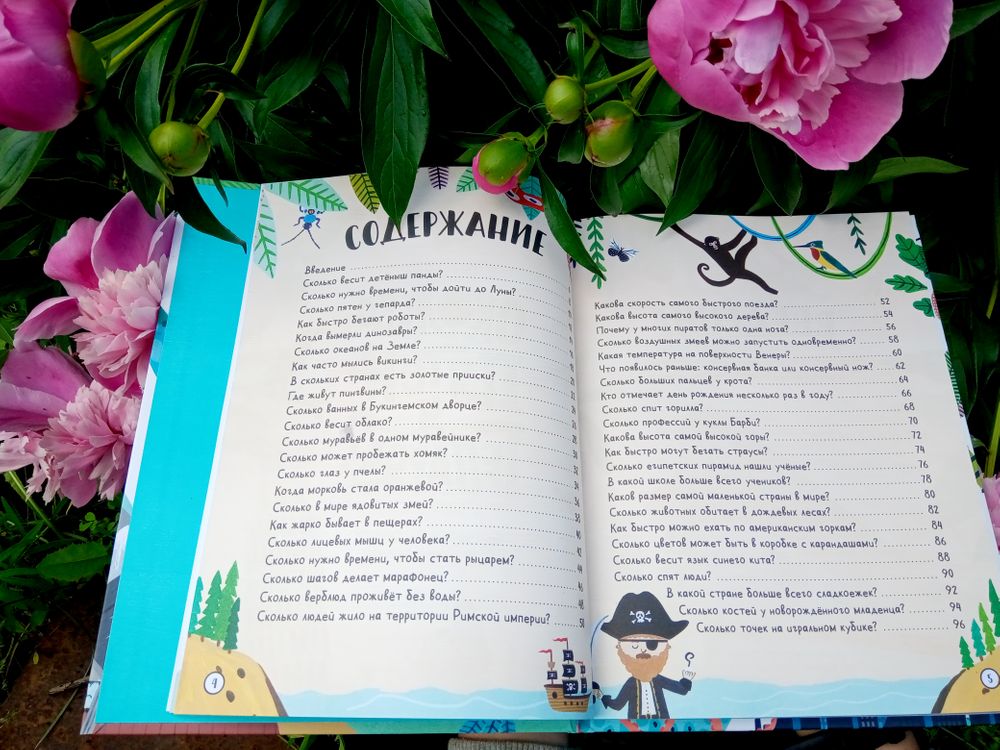 СОДЕРЖАНИЕ
Введение
Сколько весит детёныш панды?
Сколько нужно времени, чтобы дойти до Луны?
Сколько пятен у гепарда?
Как быстро бегают роботы?
Когда вымерли динозавры?
Сколько океанов на Земле?
Как часто мылись викинги?
В скольких странах есть золотые прииски?
Где живут пингвины?
Сколько ванных в Букингемском дворце?
Сколько весит облако?
Сколько муравьёв в одном муравейнике?
Сколько может пробежать хомяк? 30
Сколько глаз у пчелы? 32
Когда морковь стала оранжевой? 34
Сколько в мире ядовитых змей? 36
Как жарко бывает в пещерах? 38
Сколько лицевых мышц у человека? 40
Сколько нужно времени, чтобы стать рыцарем? 42
Сколько шагов делает марафонец? 44
Сколько верблюд проживёт без воды? 46
Сколько людей жило на территории Римской империи? 50
4
Какова скорость самого быстрого поезда? 52
Какова высота самого высокого дерева? 54
Почему у многих пиратов только одна нога? 56
Сколько воздушных змеев можно запустить одновременно? 58
Какая температура на поверхности Венеры? 60
Что появилось раньше: консервная банка или консервный нож? 62
Сколько больших пальцев у крота? 64
Кто отмечает день рождения несколько раз в году? 66
Сколько спит горилла? 68
Сколько профессий у куклы Барби? 70
Какова высота самой высокой горы? 72
Как быстро могут бегать страусы? 74
Сколько египетских пирамид нашли учёные? 76
В какой школе больше всего учеников? 78
Каков размер самой маленькой страны в мире? 80
Сколько животных обитает в дождевых лесах? 82
Как быстро можно ехать по американским горкам? 84
Сколько цветов может быть в коробке с карандашами? 86
Сколько весит язык синего кита? 88
Сколько спят люди? 90
В какой стране больше всего сладкоежек? 92
Сколько костей у новорождённого младенца? 94
Сколько точек на игральном кубике? 96
5